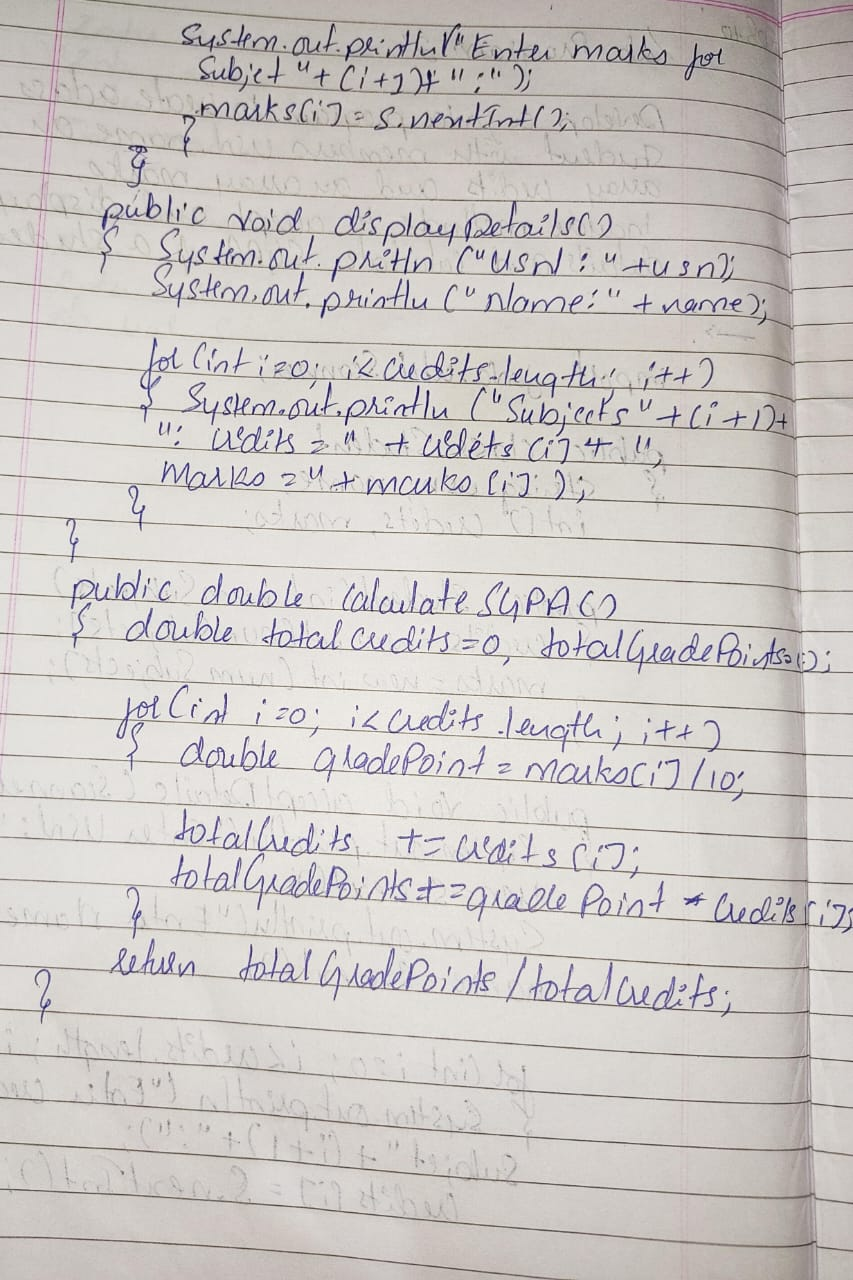 System.out.println("Enter marks for
Subjet "+(i+1)+":");
marks[i] = S.nextInt();
}
}
public void displayDetails()
{ System.out.println("USN : "+usn);
System.out.println("Name:" + name);
for (int i=0; i< credits.length; i++)
{ System.out.println ("Subjects" + (i+1)+
": credits = " + credits [i] + ",
Marks = " + marks [i]: );
}
}
public double calculate SGPA()
{ double total credits=0, totalGradePoints=0;
for (int i=0; i< credits.length; i++)
{ double gradePoint = marks[i]/10;
totalCredits += credits [i];
totalGradePoints += grade Point * credits [i];
}
return totalGradePoints / totalcredits;
}